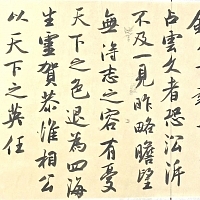 占雲久者恐沿泝
不及一見昨略瞻望
無得志之容有憂
天下之色退為四海
生靈賀恭惟相公
以天下之英任